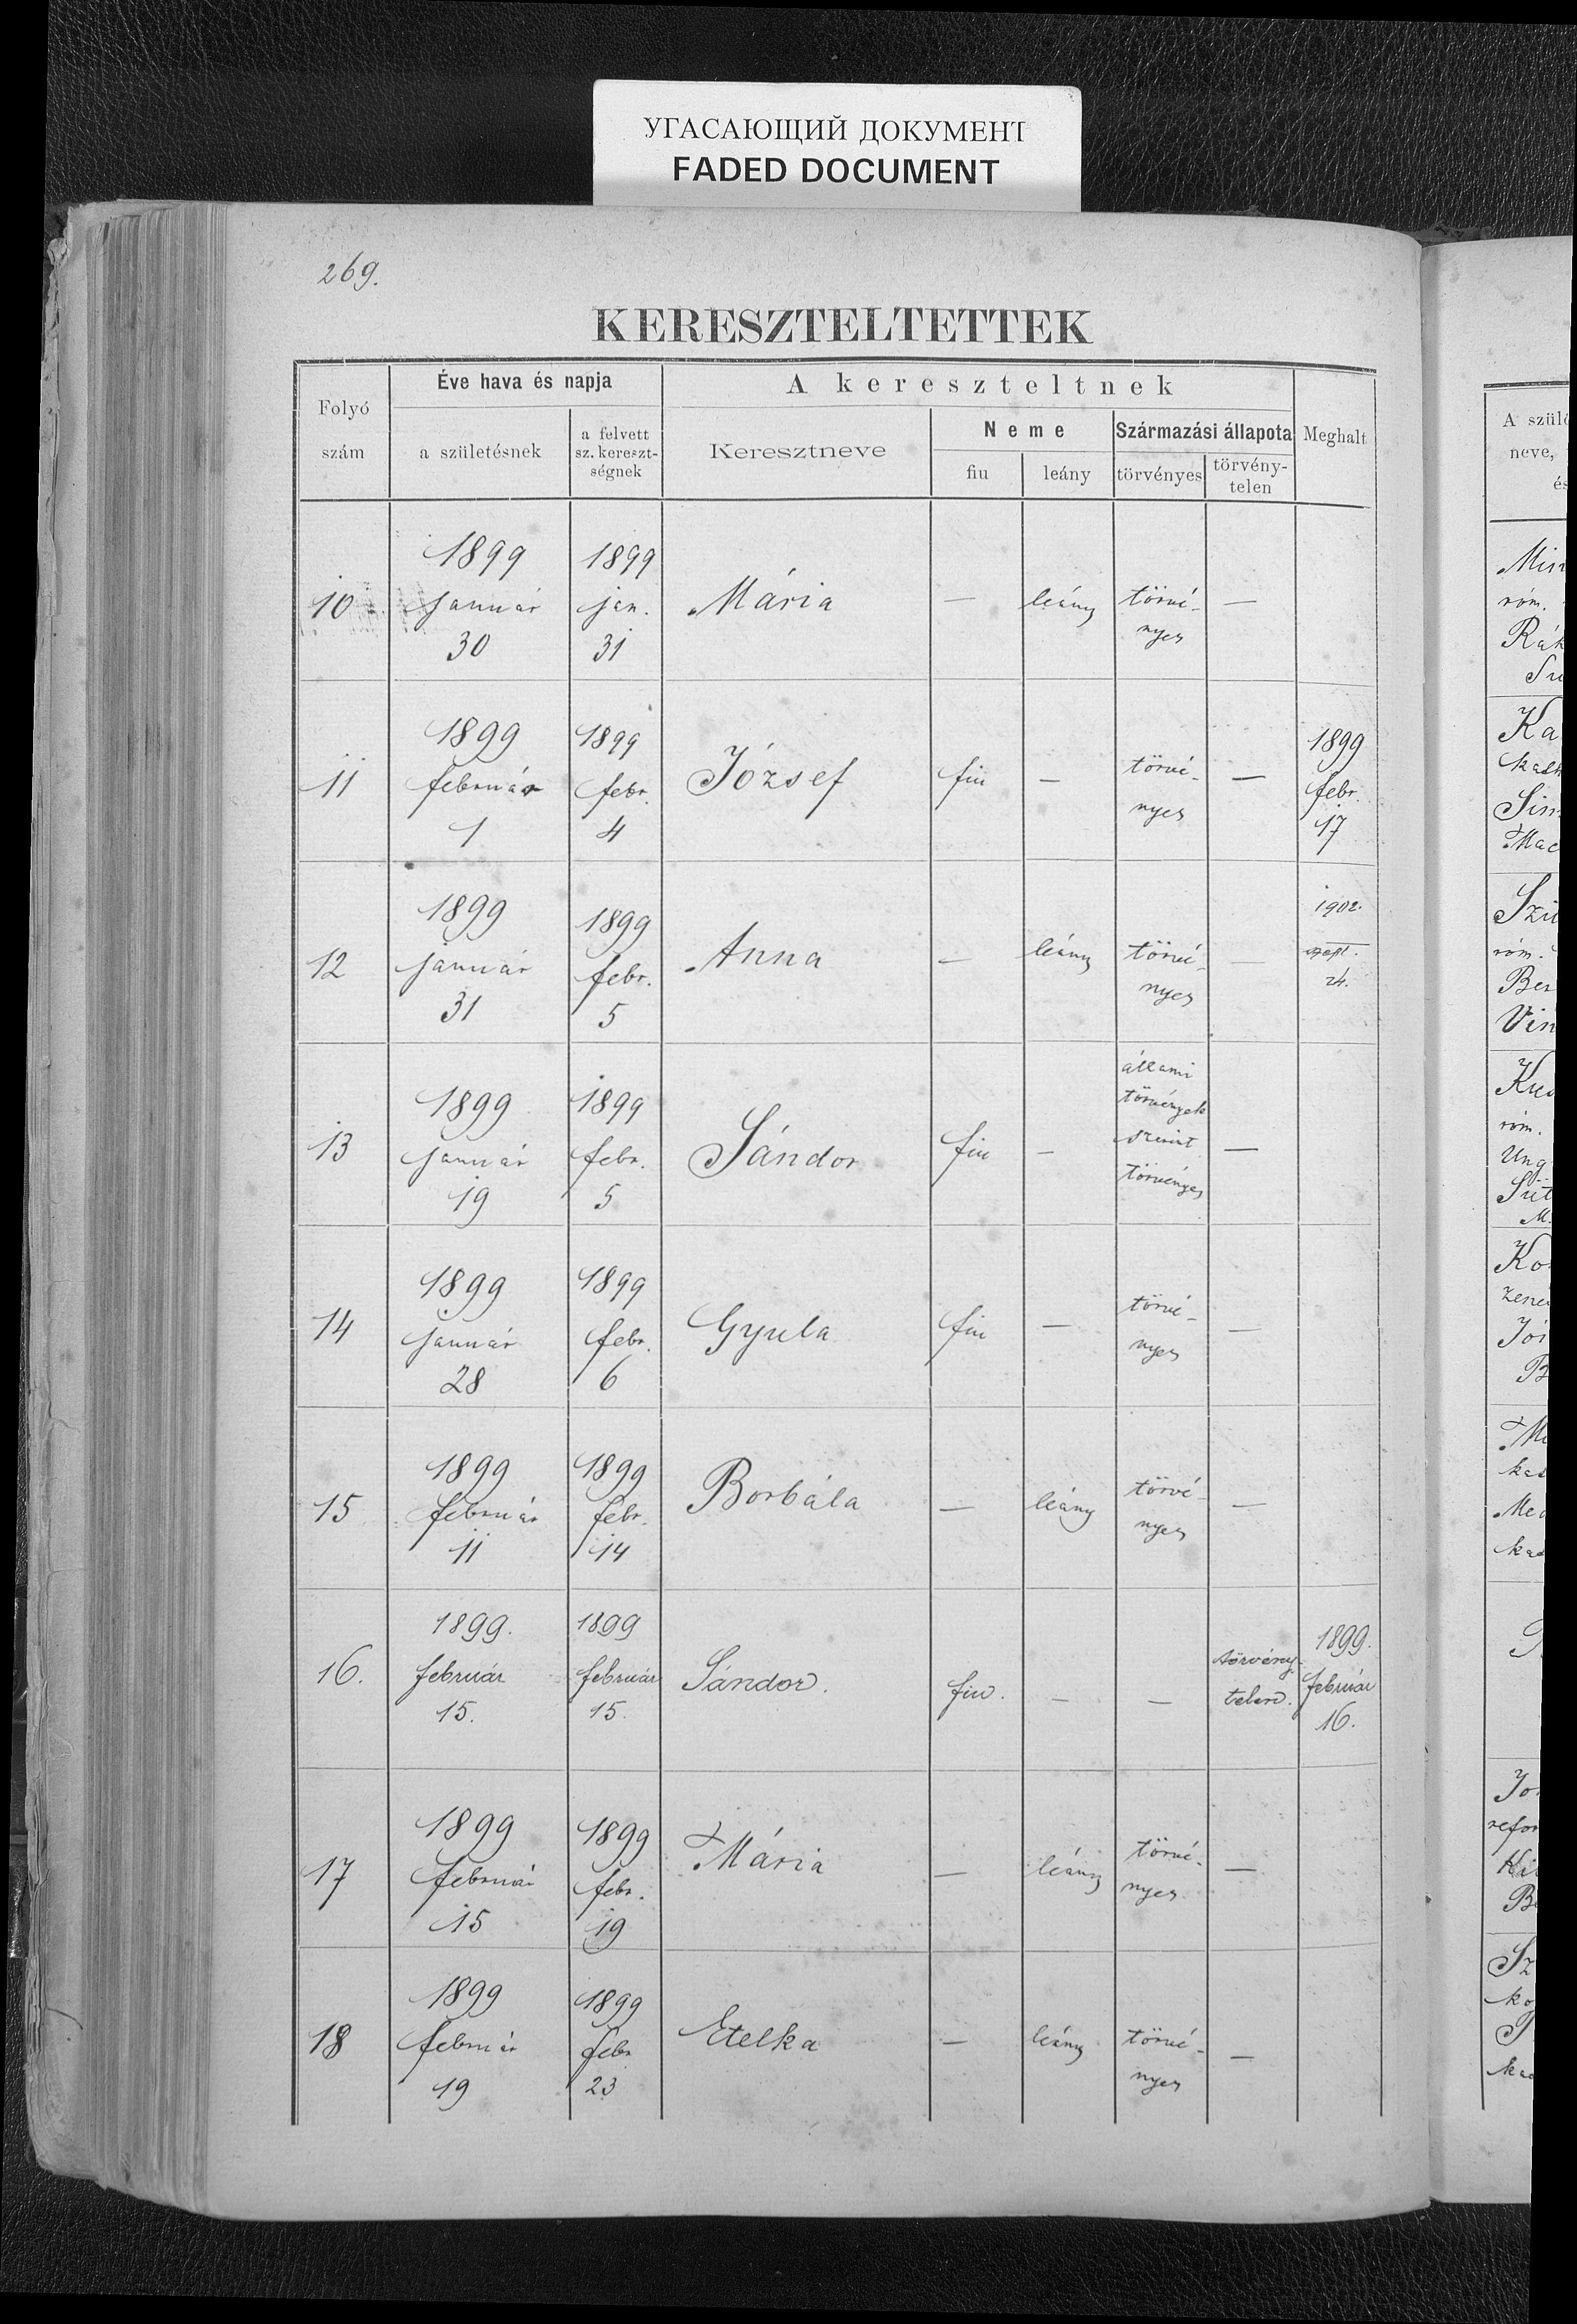 УГАСАЮЩИЙ ДОКУМЕНТ
FADED DOCUMENT
269.
KERESZTELTETTEK
Folyó szám
Éve hava és napja
a születésnek
a felvett sz. kereszt-ségnek
A kereszteltnek
Keresztneve
Neme
fiu
leány
Származási állapota
törvényes
törvény-telen
Meghalt
10
1899 január 30
1899 jan. 31
Mária
—
leány
törvé-nyes
—
11
1899 február 1
1899 febr. 4
József
fiu
—
törvé-nyes
—
1899 febr. 17
12
1899 január 31
1899 febr. 5
Anna
—
leány
törvé-nyes
—
1902. szept. 24.
13
1899 január 19
1899 febr. 5
Sándor
fiu
—
állami törvények szerint törvényes
—
14
1899 január 28
1899 febr. 6
Gyula
fiu
—
törvé-nyes
—
15
1899 február 11
1899 febr. 14
Borbála
—
leány
törvé-nyes
—
16.
1899. február 15.
1899 február 15.
Sándor.
fiu.
—
—
törvény-telen.
1899. február 16.
17
1899 február 15
1899 febr. 19
Mária
—
leány
törvé-nyes
—
18
1899 február 19
1899 febr 23
Etelka
—
leány
törvé-nyes
—
A szül
neve,
és
róm.
róm.
róm.